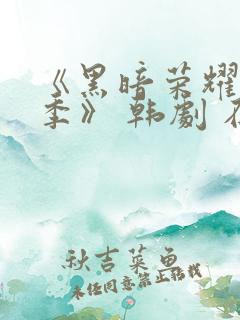 《黑暗荣耀
季》 韩剧
秋吉菜鱼
未经同意禁止转载